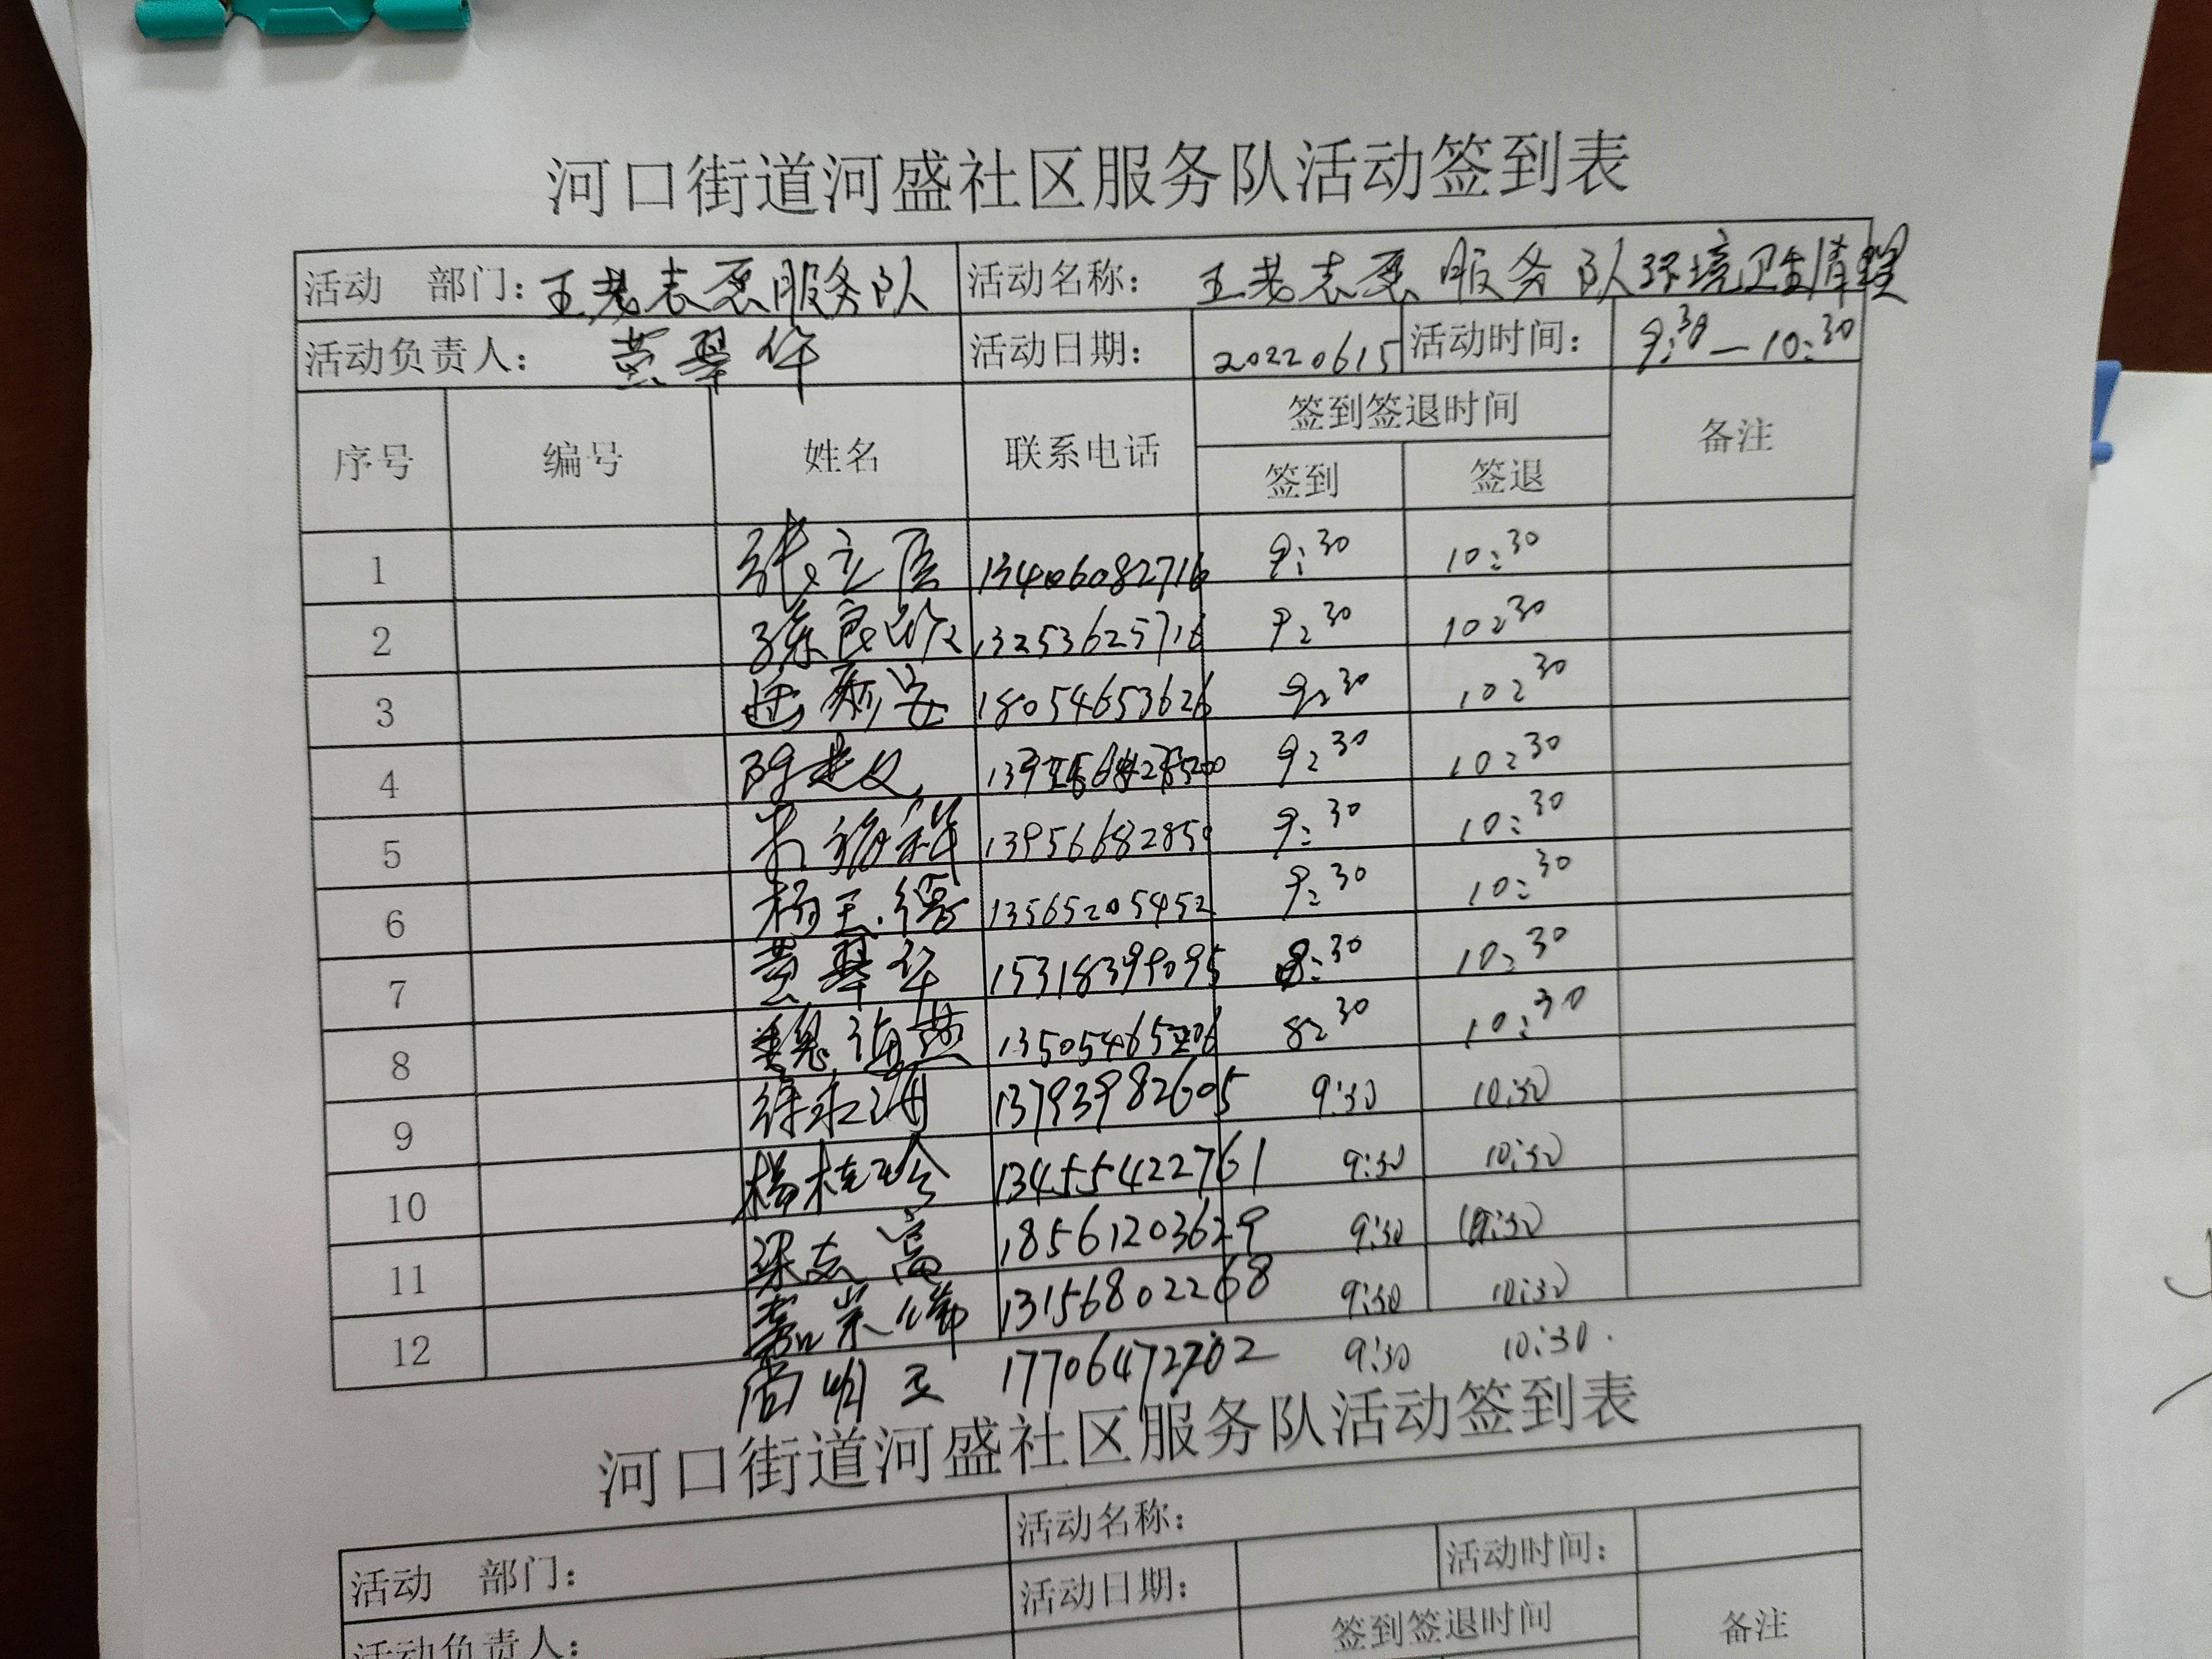 河口街道河盛社区服务队活动签到表
活动 部门: 王老志愿服务队 活动名称: 王老志愿服务队环境卫生清理
活动负责人: 黄翠华 活动日期: 20220615 活动时间: 9:30—10:30
签到签退时间
序号 编号 姓名 联系电话 备注
签到 签退
1 13406082716 9:30 10:30
2 13253625716 9:30 10:30
3 18054653626 9:30 10:30
4 9:30 10:30
5 13956682850 9:30 10:30
6 13565205452 9:30 10:30
7 黄翠华 15318399095 8:30 10:30
8 魏海燕 8:30 10:30
9 徐永海 13793982605 9:30 10:30
10 杨桂玲 13455422761 9:30 10:30
11 梁志富 18561203629 9:30 10:30
12 13156802268 9:30 10:30
尚明玉 17706472702 9:30 10:30.
河口街道河盛社区服务队活动签到表
活动 部门: 活动名称:
活动负责人: 活动日期: 活动时间:
签到签退时间 备注